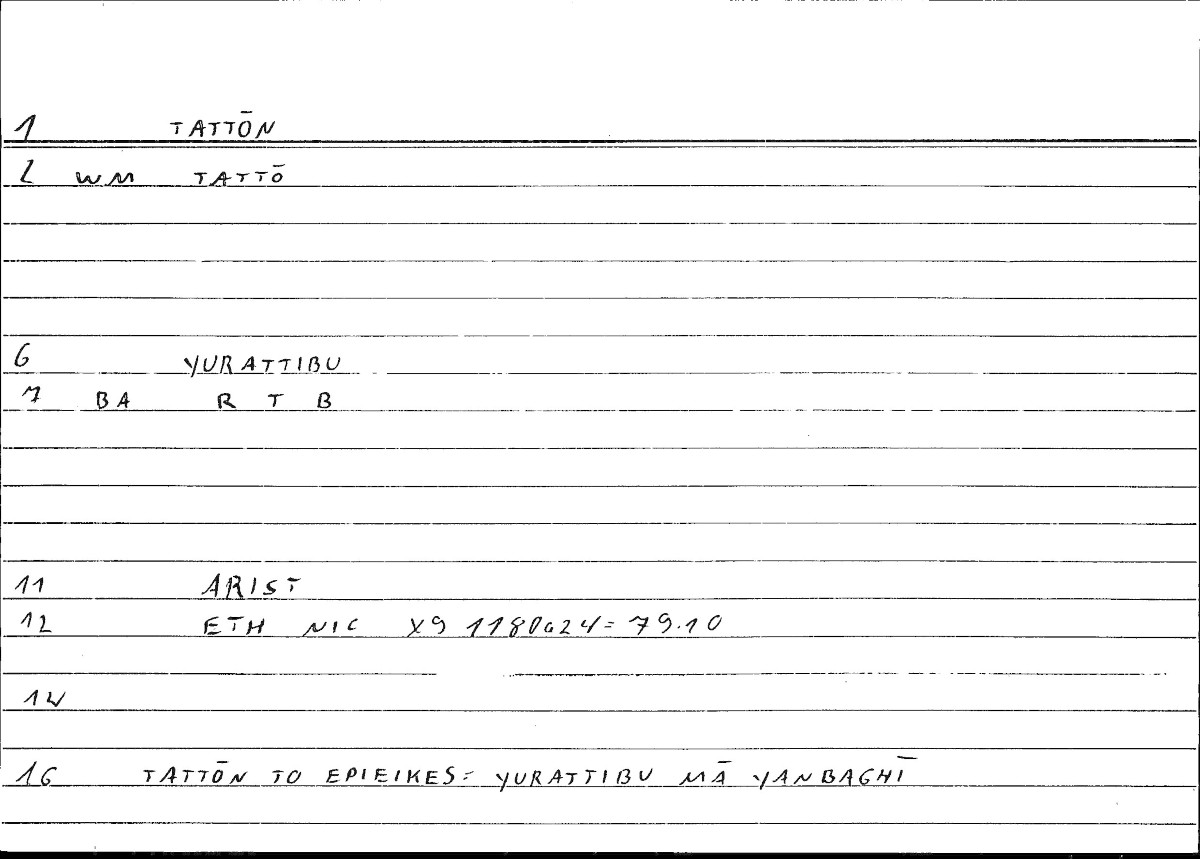 1 TATTŌN
2 WM TATTŌ
6 YURATTIBU
7 BA R T B
11 ARIST
12 ETH NIC X9 1180a24=79.10
14
16 TATTŌN TO EPIEIKES= YURATTIBU MĀ YANBAGHĪ